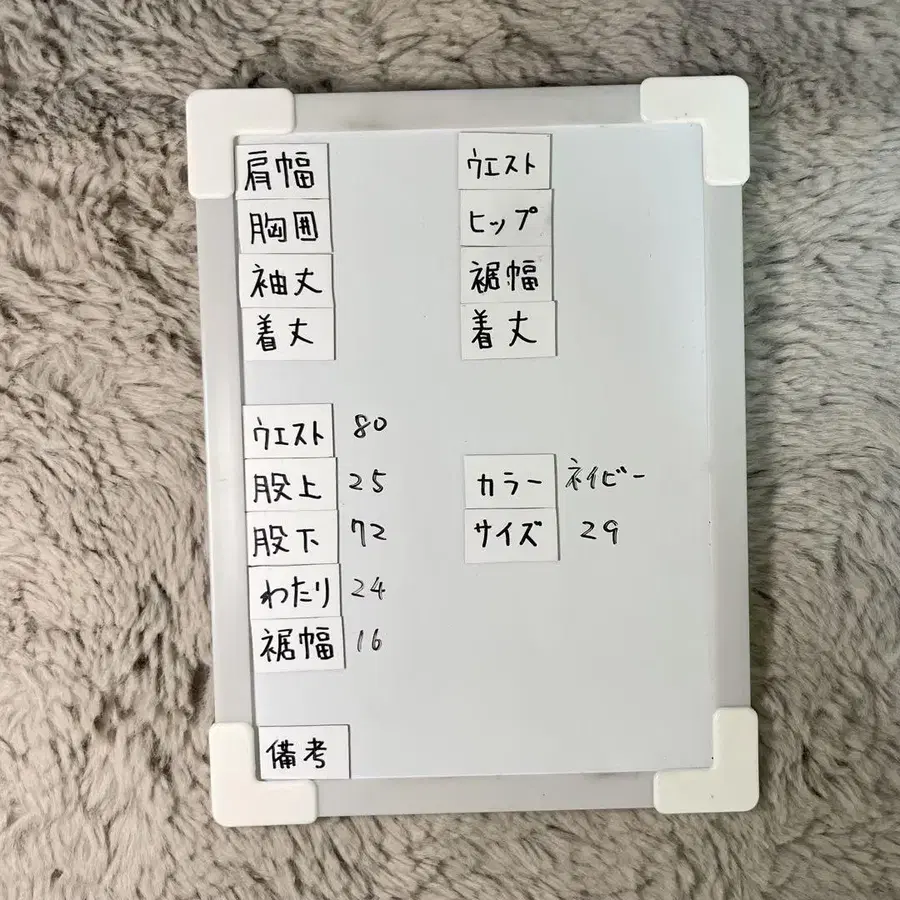 肩幅
胸囲
袖丈
着丈
ウエスト
ヒップ
裾幅
着丈
ウエスト 80
股上 25
股下 72
わたり 24
裾幅 16
カラー ネイビー
サイズ 29
備考